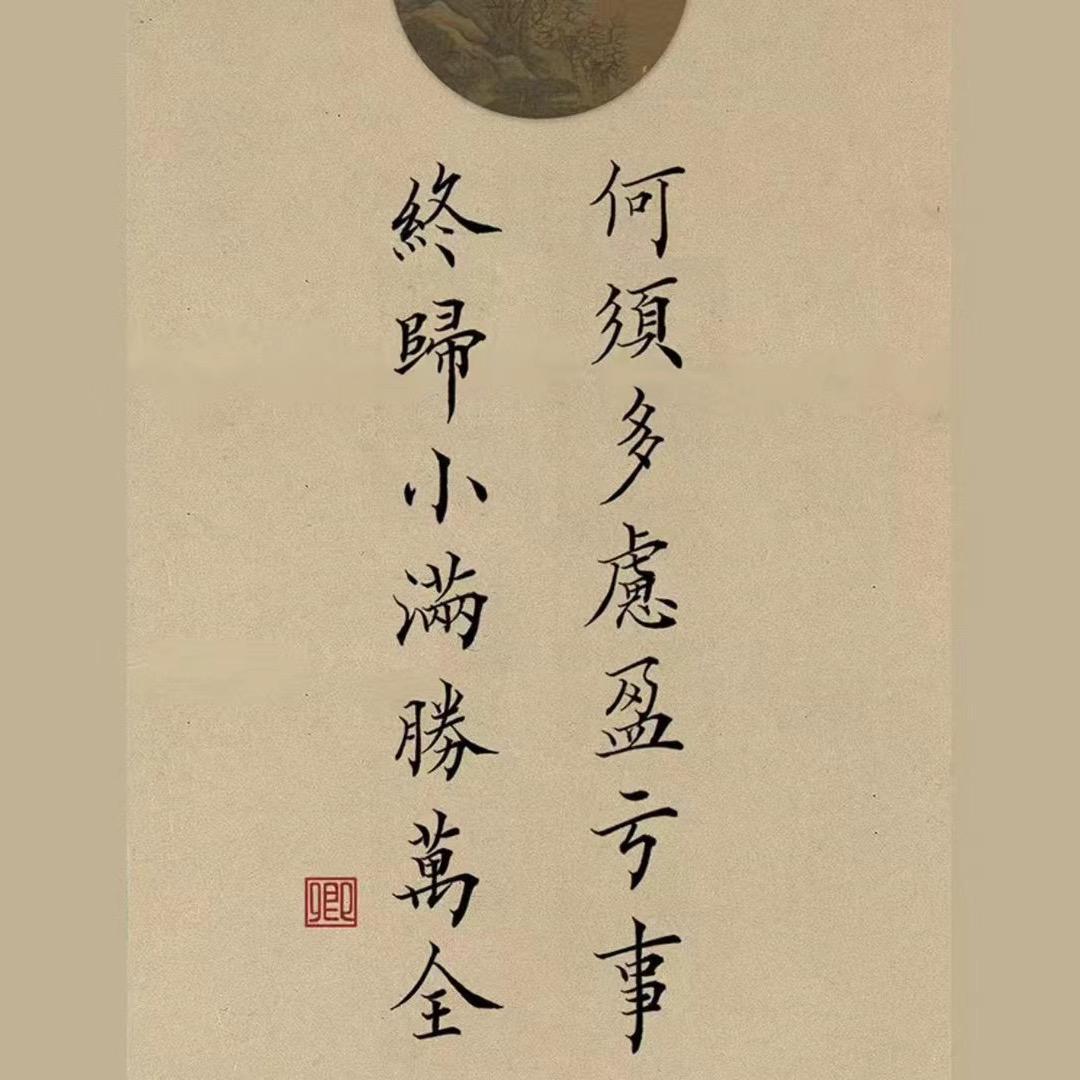 何須多慮盈亏事
終歸小滿勝萬全
卿